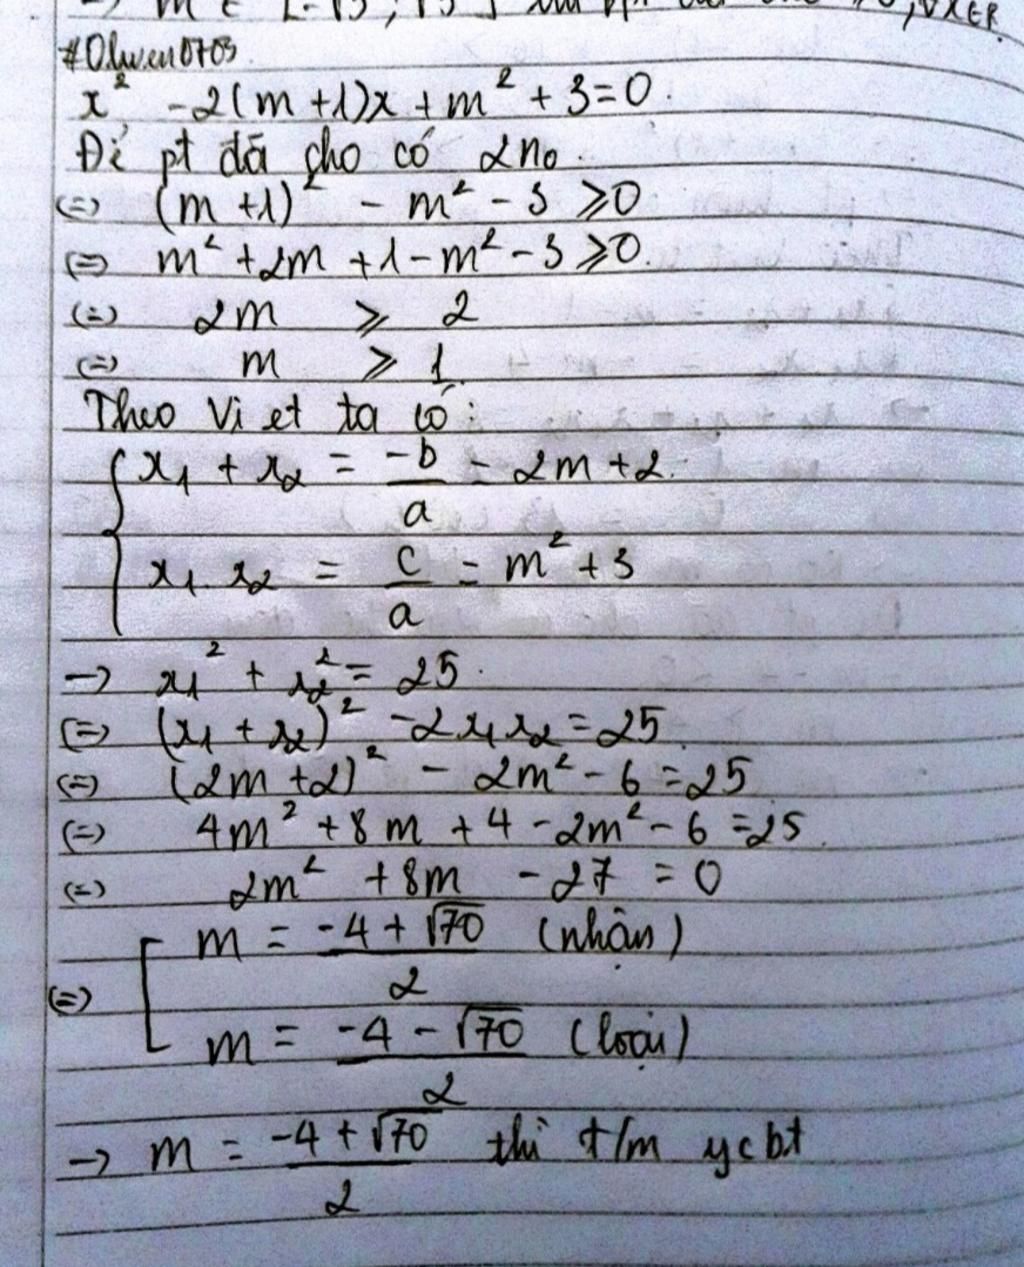 → m ∈ [-√3 ; √3] thì bpt đã cho ≥ 0, ∀x∈R
#Olwen0703
x² - 2(m+1)x + m² + 3 = 0
Để pt đã cho có 2 n₀.
(=) (m+1)² - m² - 3 ⩾ 0
(=) m² + 2m + 1 - m² - 3 ⩾ 0.
(=) 2m ⩾ 2
(=) m ⩾ 1
Theo Vi et ta có:
{ x₁ + x₂ = -b/a = 2m + 2.
x₁.x₂ = c/a = m² + 3
→ x₁² + x₂² = 25.
(=) (x₁ + x₂)² - 2x₁x₂ = 25
(=) (2m+2)² - 2m² - 6 = 25
(=) 4m² + 8m + 4 - 2m² - 6 = 25.
(=) 2m² + 8m - 27 = 0
(=) [ m = (-4 + √70)/2 (nhận)
m = (-4 - √70)/2 (loại)
→ m = (-4 + √70)/2 thì t/m ycbt